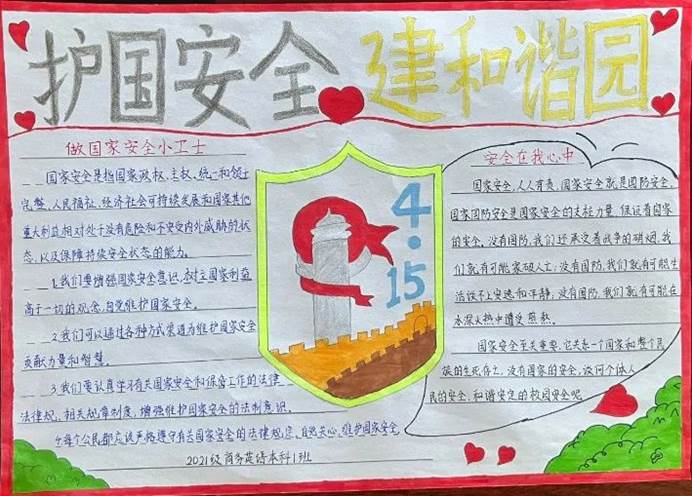 护国安全 建和谐园
做国家安全小卫士
国家安全是指国家政权、主权、统一和领土
完整、人民福祉、经济社会可持续发展和国家其他
重大利益相对处于没有危险和不受内外威胁的状
态,以及保障持续安全状态的能力。
1.我们要增强国家安全意识,树立国家利益
高于一切的观念,自觉维护国家安全。
2.我们可以通过各种方式渠道为维护国家安全
贡献力量和智慧。
3.我们要认真学习有关国家安全和保密工作的法律
法律规、相关规章制度,增强维护国家安全的法制意识。
4.每个公民都应该严格遵守有关国家安全的法律规定,自觉关心、维护国家安全
2021级商务英语本科1班
4·15
安全在我心中
国家安全,人人有责,国家安全就是国防安全,
国家国防安全是国家安全的支柱力量,保证着国家
的安全。没有国防,我们还承受着战争的硝烟,我
们就有可能家破人亡;没有国防,我们就有可能生
活饮不上安稳和平静;没有国防,我们就有可能在
水深火热中遭受煎熬。
国家安全至关重要,它关系一个国家和整个民
族的生死存亡。没有国家的安全,谈何个体人
民的安全,和谐安定的校园安全呢